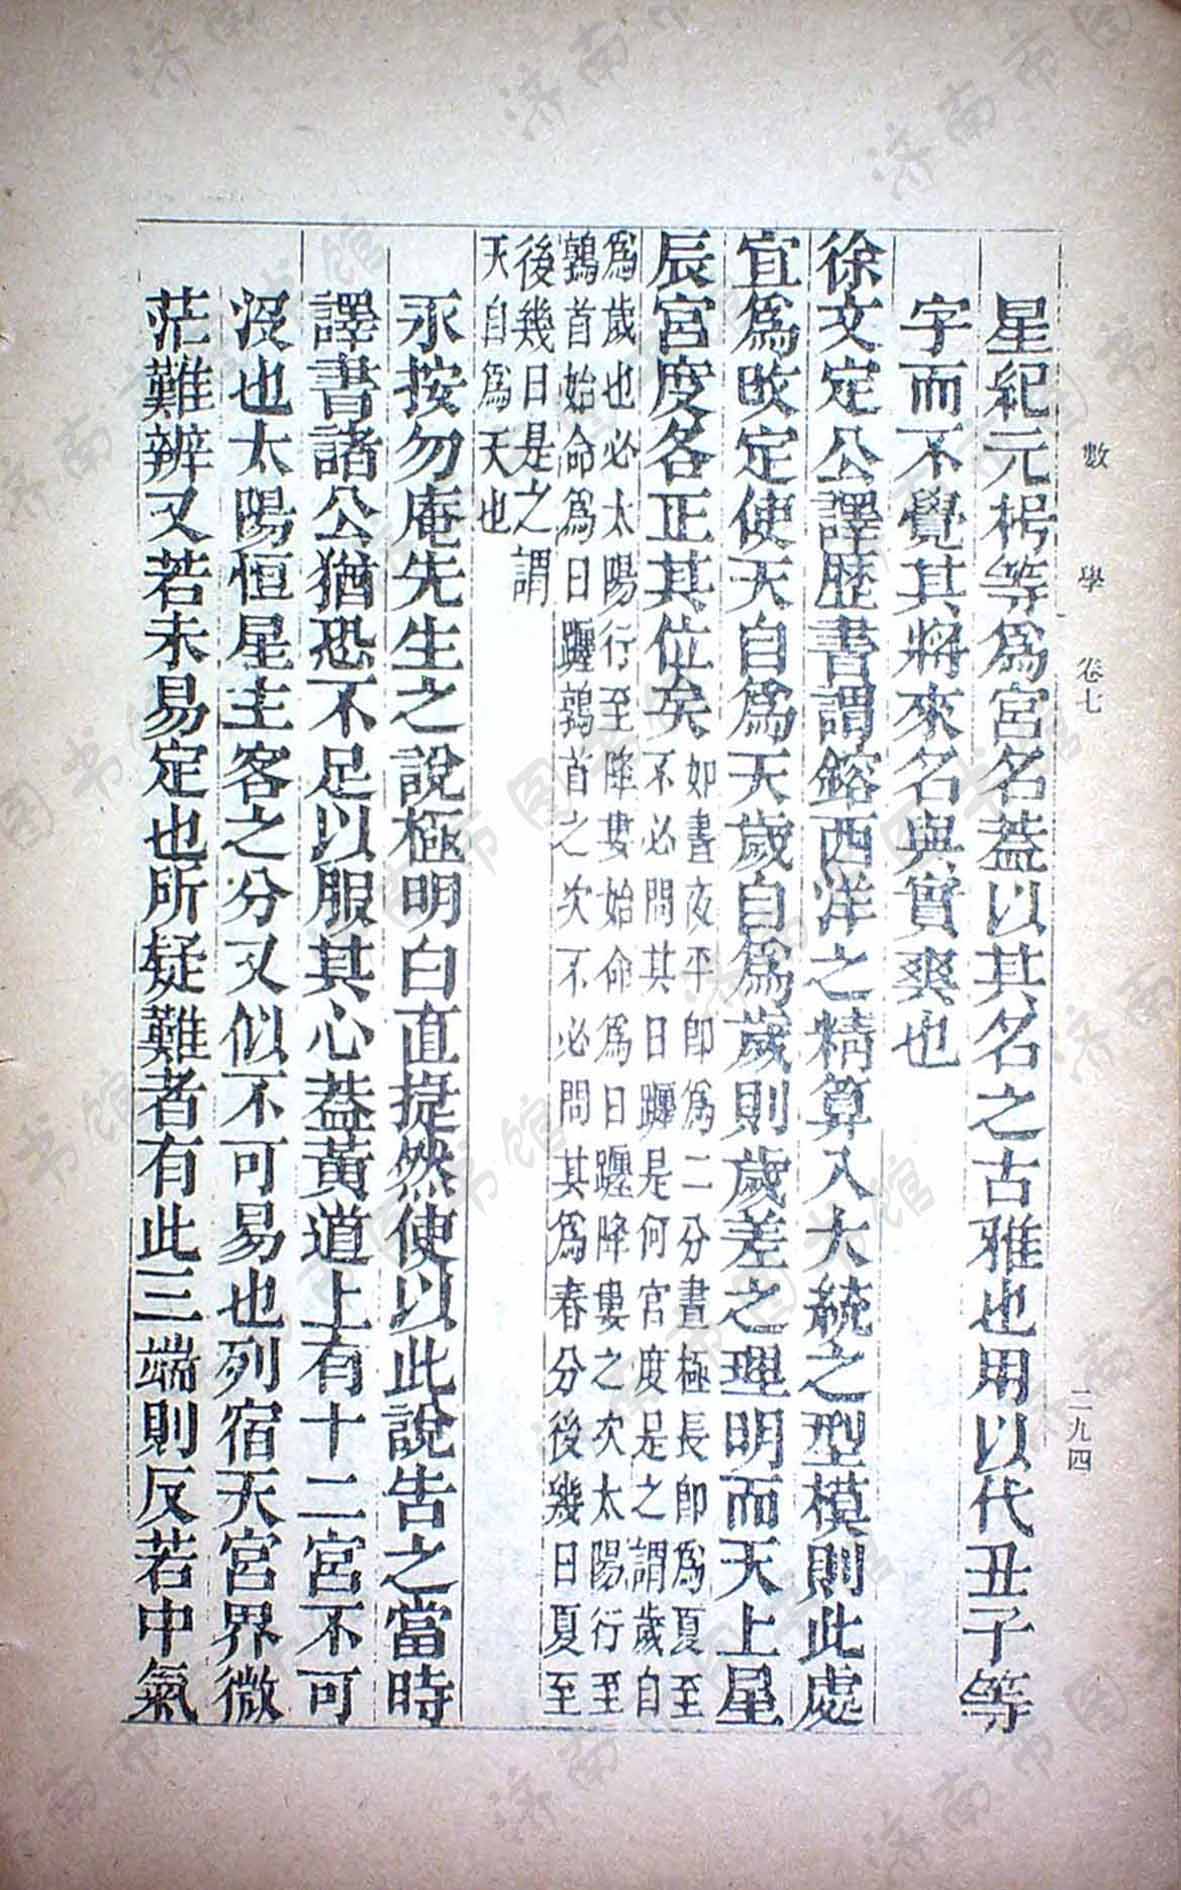 數學 卷七 二九四
星紀元枵等爲宮名蓋以其名之古雅也用以代丑子等
字而不覺其將來名與實爽也
徐文定公譯歷書謂鎔西洋之精算入大統之型模則此處
宜爲改定使天自爲天歲自爲歲則歲差之理明而天上星
辰宮度各正其位矣
如晝夜平卽爲二分晝極長卽爲夏至
不必問其日躔是何宮度是之謂歲自
爲歲也必太陽行至降婁始命爲日躔降婁之次太陽行至
鶉首始命爲日躔鶉首之次不必問其爲春分後幾日夏至
後幾日是之謂
天自爲天也
永按勿庵先生之說極明白直捷然使以此說告之當時
譯書諸公猶恐不足以服其心蓋黃道上有十二宮不可
沒也太陽恒星主客之分又似不可易也列宿天宮界微
茫難辨又若未易定也所疑難者有此三端則反若中氣
济南市图书馆